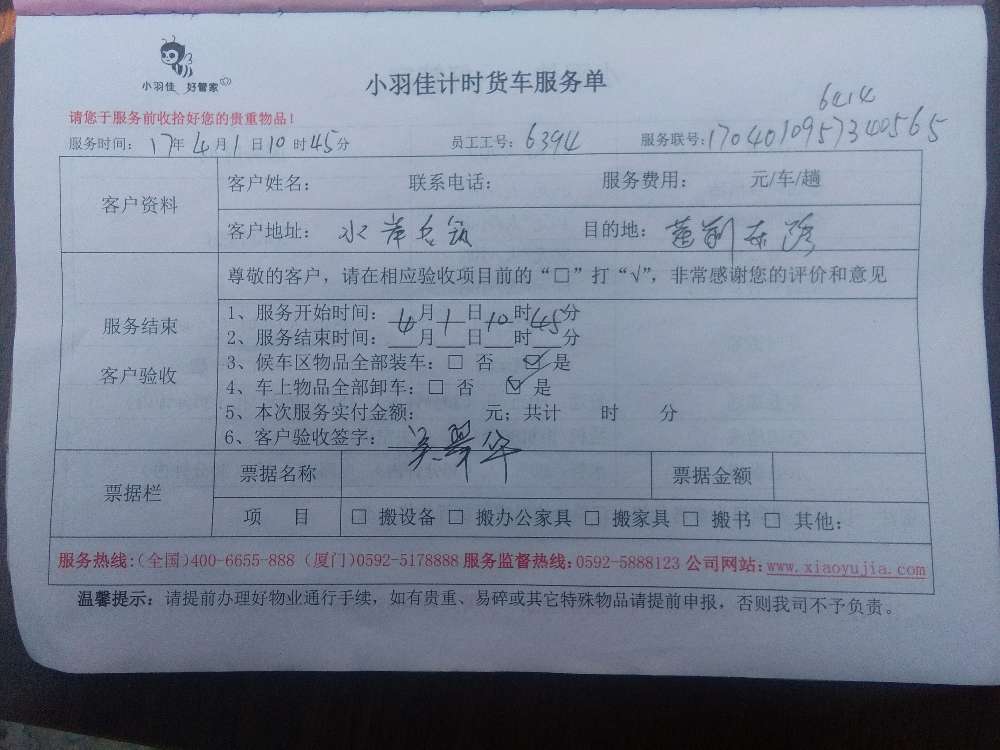 小羽佳 好管家
小羽佳计时货车服务单
6414
请您于服务前收拾好您的贵重物品！
服务时间：17年4月1日10时45分 员工工号：6394 服务联号：1704010957340565
客户资料
客户姓名： 联系电话： 服务费用： 元/车/趟
客户地址：水岸名筑 目的地：莲前东路
服务结束
客户验收
尊敬的客户，请在相应验收项目前的“□”打“√”，非常感谢您的评价和意见
1、服务开始时间：4月1日10时45分
2、服务结束时间：__月__日__时__分
3、候车区物品全部装车：□ 否 ☑ 是
4、车上物品全部卸车：□ 否 ☑ 是
5、本次服务实付金额： 元；共计 时 分
6、客户验收签字：吴翠华
票据栏
票据名称 票据金额
项 目 □ 搬设备 □ 搬办公家具 □ 搬家具 □ 搬书 □ 其他：
服务热线：(全国)400-6655-888 (厦门)0592-5178888 服务监督热线：0592-5888123 公司网站：www.xiaoyujia.com
温馨提示：请提前办理好物业通行手续，如有贵重、易碎或其它特殊物品请提前申报，否则我司不予负责。